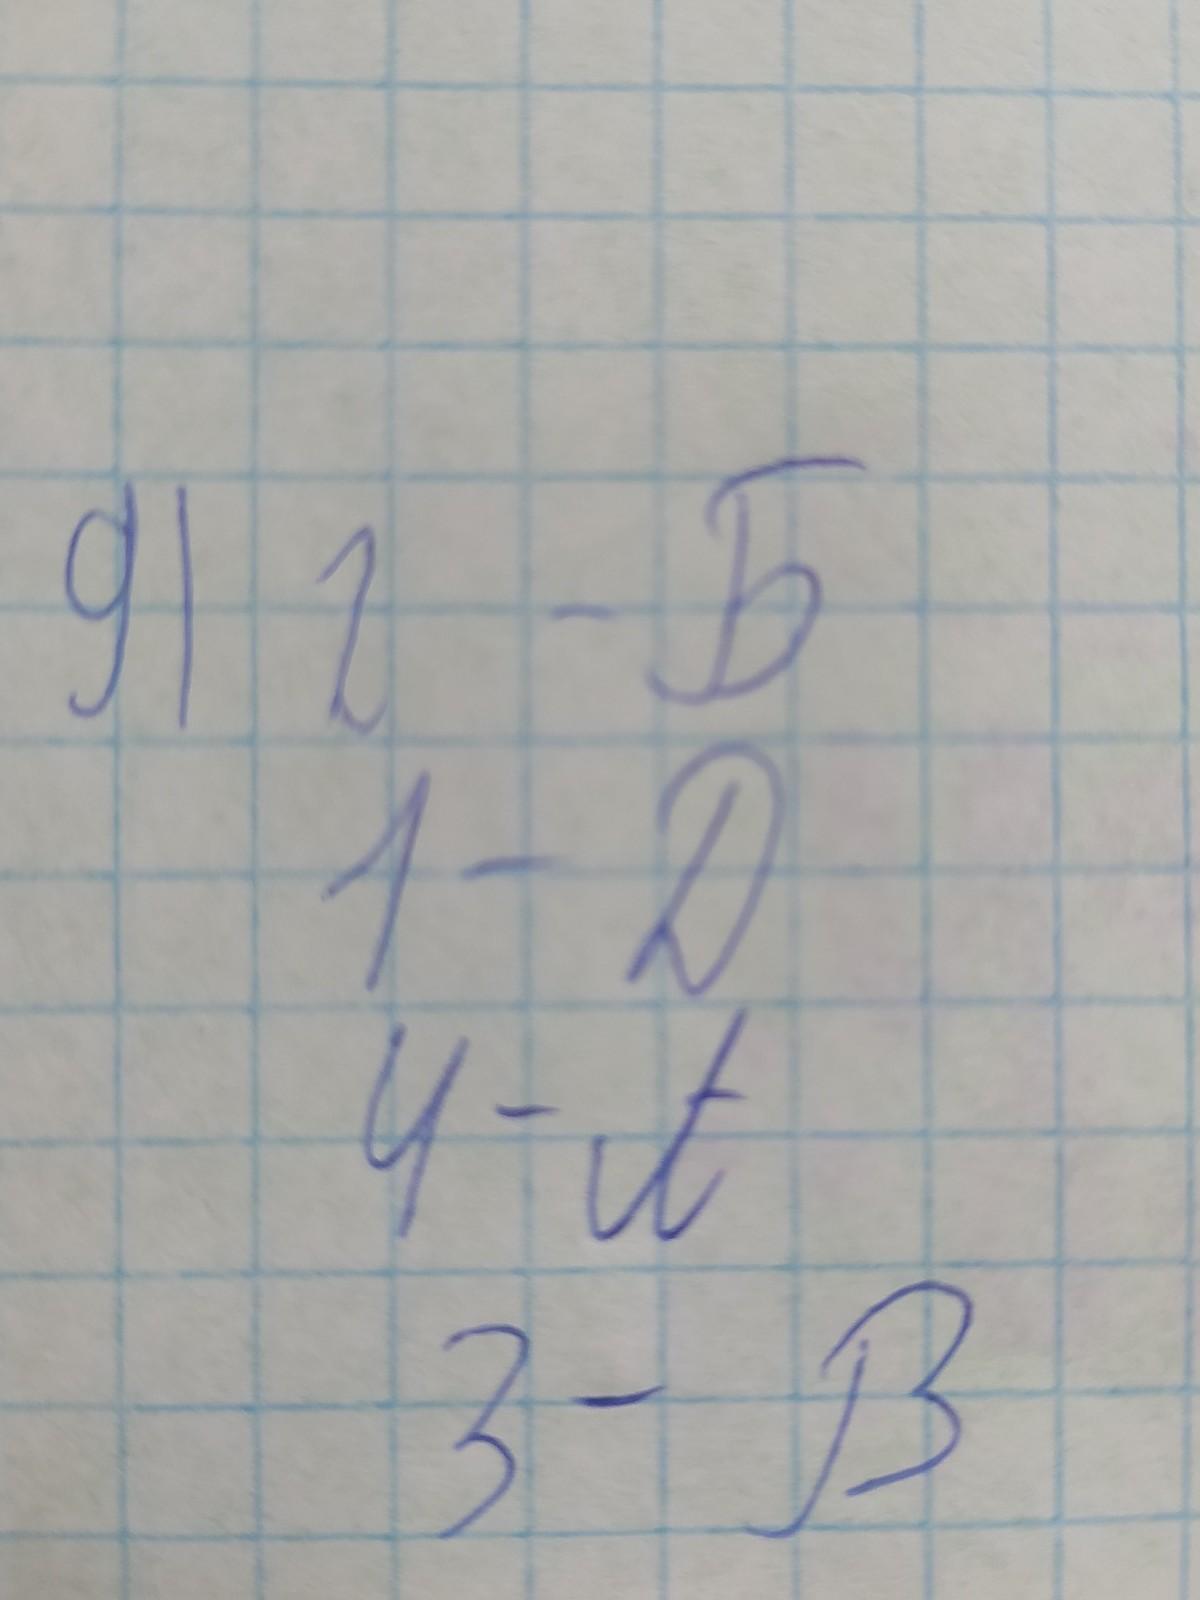 9) 2 - Б
1 - D
4 - А
3 - В